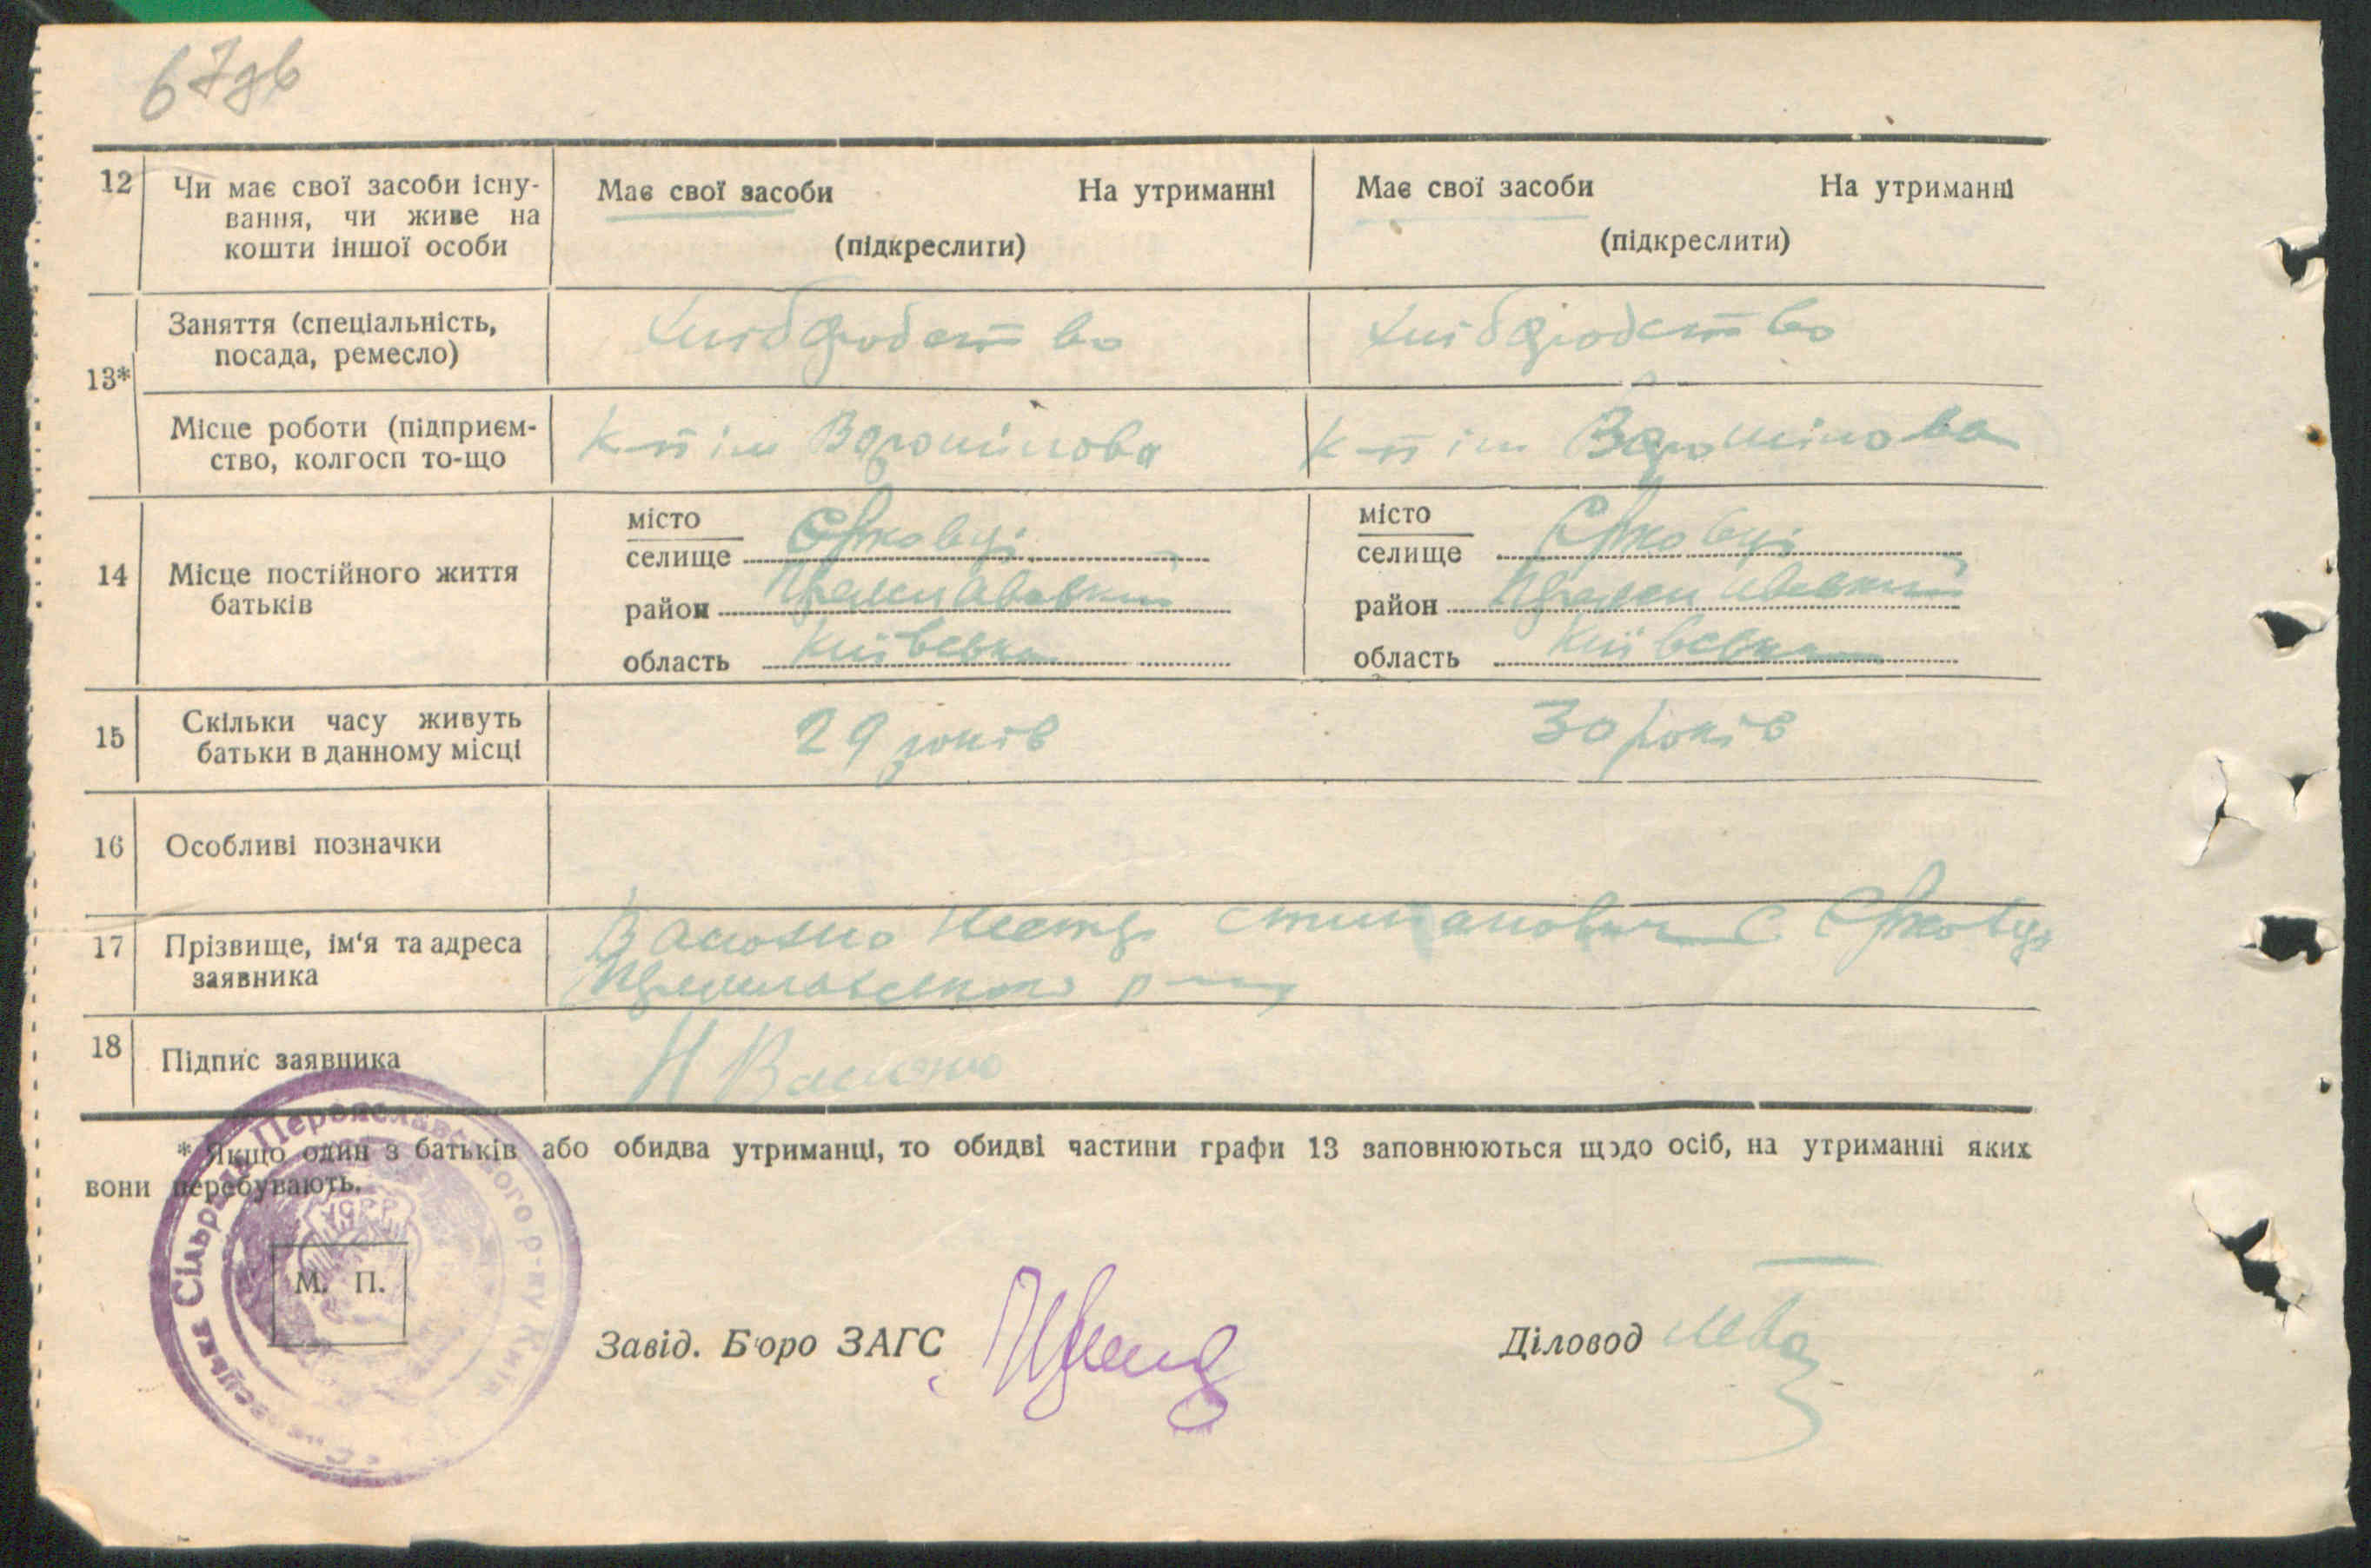 67зв
12 Чи має свої засоби існу-
вання, чи живе на
кошти іншої особи
Має свої засоби На утриманні
(підкреслити)
Має свої засоби На утриманні
(підкреслити)
13*
Заняття (спеціальність,
посада, ремесло)
Хлібробство
Хлібробство
Місце роботи (підприєм-
ство, колгосп то-що
К-п ім Ворошілова
К-п ім Ворошілова
14 Місце постійного життя
батьків
місто
селище Єрковці
район
область Київська
місто
селище Єрковці
район
область Київська
15 Скільки часу живуть
батьки в данному місці
29 років
30 років
16 Особливі позначки
17 Прізвище, ім'я та адреса
заявника
Нестір с. Єрковці
18 Підпис заявника
* Якщо один з батьків або обидва утриманці, то обидві частини графи 13 заповнюються щодо осіб, на утриманні яких
вони перебувають.
М. П.
Завід. Бюро ЗАГС
Діловод